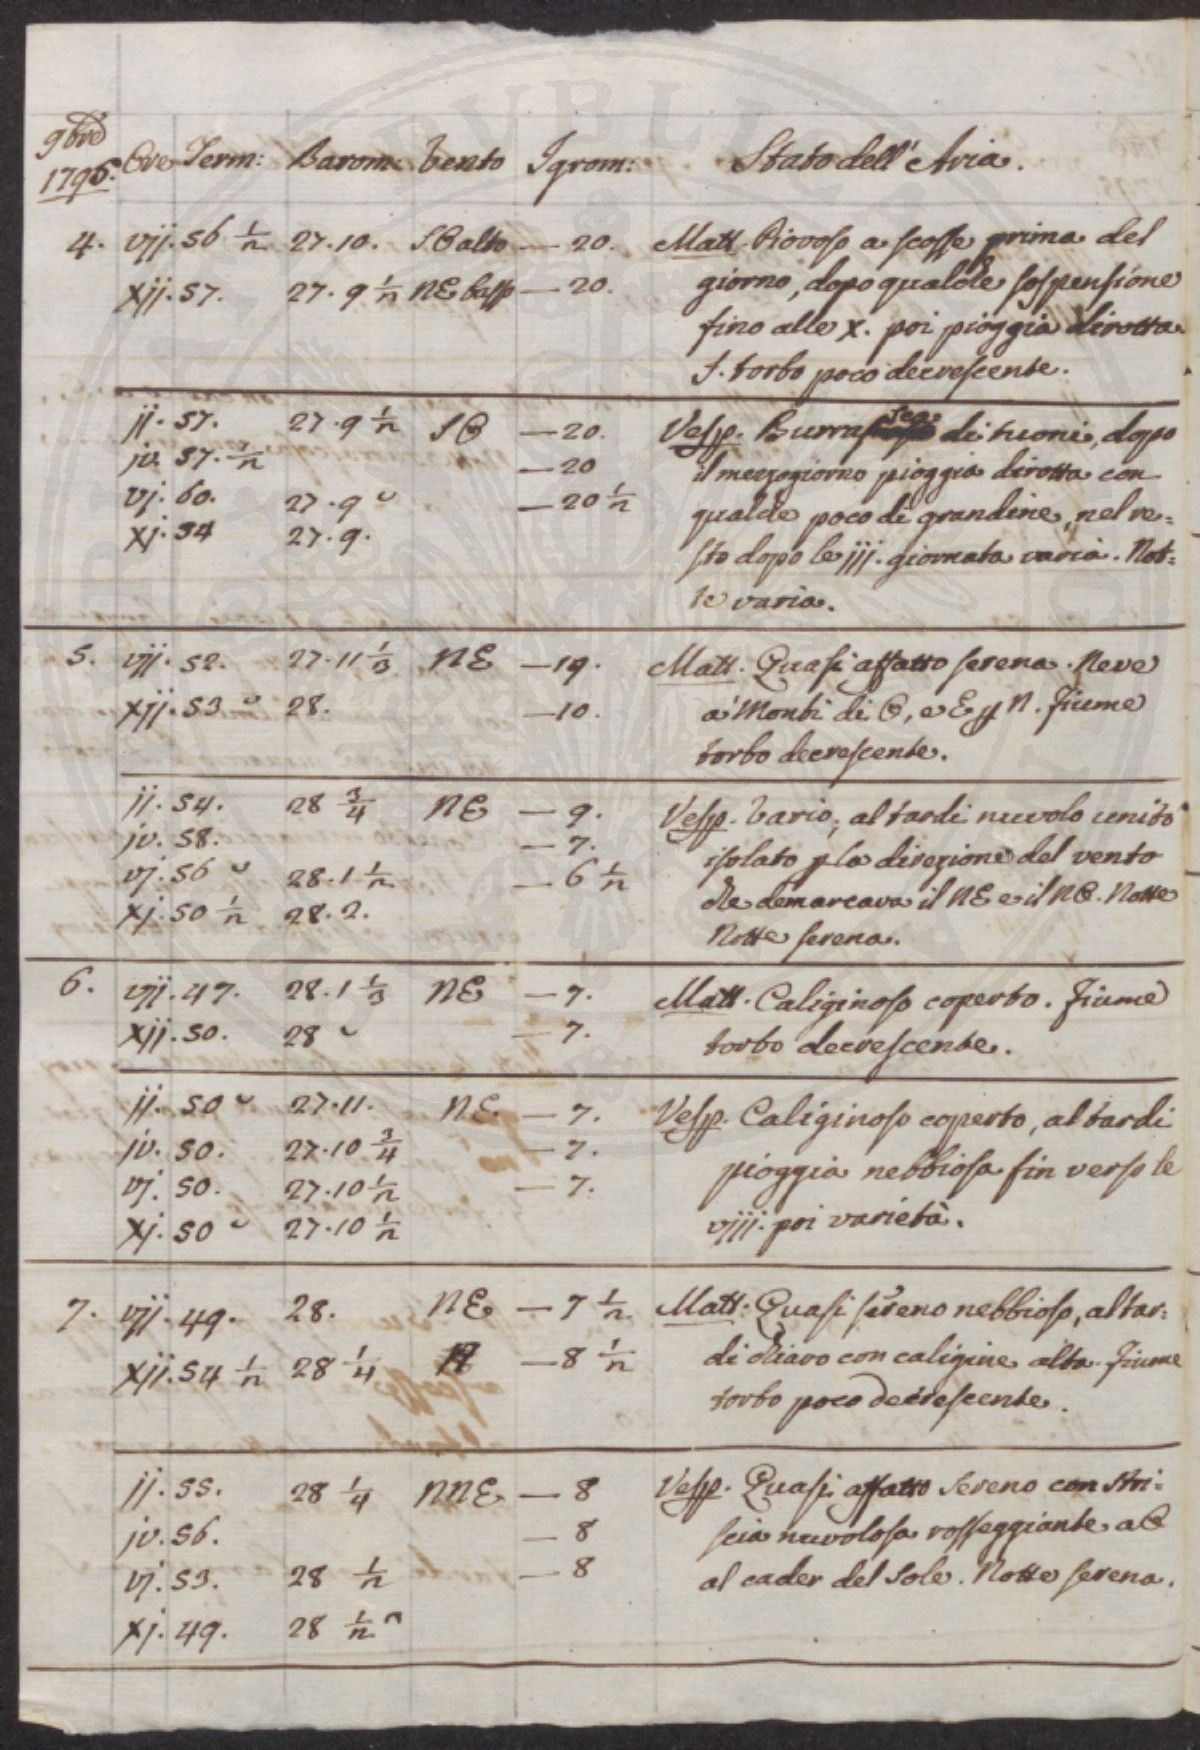 9bre
1796. Ore Term: Barom: Vento Igrom: Stato dell' Aria.
4. vij. 56 1/2 27.10. SO alto — 20. Matt. Piovoso a scosse prima del
xij. 57. 27.9 1/2 NE basso — 20. giorno, dopo qualche sospensione
fino alle x. poi pioggia dirotta.
F. torbo poco decrescente.
ij. 57. 27.9 1/2 SO — 20. Vesp. Burrasca di tuoni, dopo
iv. 57. 1/2 — 20 il mezzogiorno pioggia dirotta con
vj. 60. 27.9 ᴗ — 20 1/2 qualche poco di grandine, nel re=
xj. 54 27.9. sto dopo le iij. giornata varia. Not=
te varia.
5. vij. 52. 27.11 1/3 NE — 19. Matt. Quasi affatto serena. Neve
xij. 53 ᴗ 28. — 10. a' Monti di O, e E p N. Fiume
torbo decrescente.
ij. 54. 28 3/4 NE — 9. Vesp. Vario, al tardi nuvolo unito
iv. 58. — 7. isolato p la direzione del vento
vj. 56 ᴗ 28.1 1/2 — 6 1/2 che demarcava il NE e il NO. Notte
xj. 50 1/2 28.2. Notte serena.
6. vij. 47. 28.1 1/3 NE — 7. Matt. Caliginoso coperto. Fiume
xij. 50. 28 ᴗ — 7. torbo decrescente.
ij. 50 ᴗ 27.11. NE. — 7. Vesp. Caliginoso coperto, al tardi
iv. 50. 27.10 3/4 — 7. pioggia nebbiosa fin verso le
vj. 50. 27.10 1/2 — 7. viij. poi varietà.
xj. 50 ᴗ 27.10 1/2
7. vij. 49. 28. NE — 7 1/2 Matt. Quasi sereno nebbioso, al tar=
xij. 54 1/2 28 1/4 N — 8 1/2 di chiaro con caligine alta. Fiume
torbo poco decrescente.
ij. 55. 28 1/4 NNE — 8 Vesp. Quasi affatto sereno con stri=
iv. 56. — 8 scia nuvolosa rosseggiante a O
vj. 53. 28 1/2 — 8 al cader del Sole. Notte serena.
xj. 49. 28 1/2